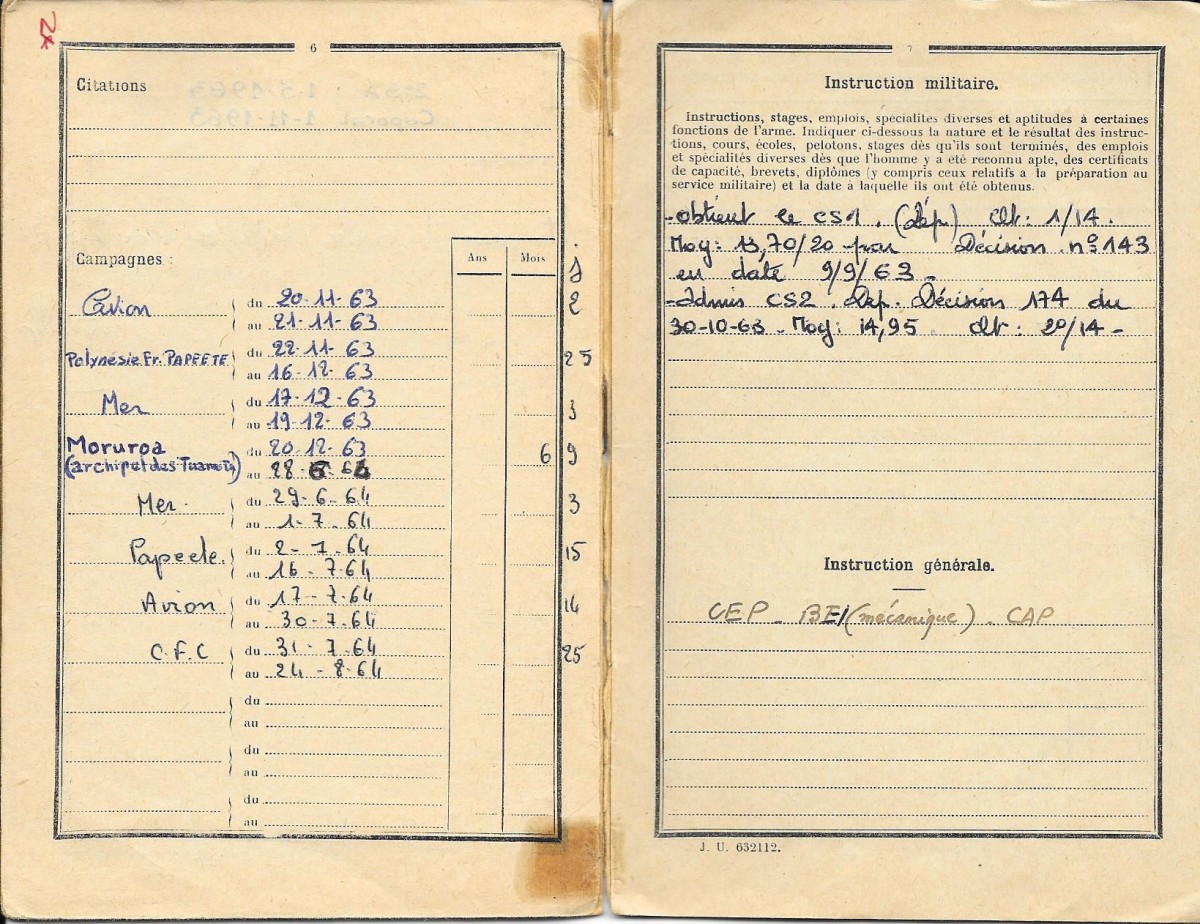 6
Citations
Campagnes :
Ans Mois j
Avion du 20-11-63 2
au 21-11-63
Polynésie Fr. PAPEETE du 22-11-63 25
au 16-12-63
Mer du 17-12-63 3
au 19-12-63
Moruroa du 20-12-63 6 9
(archipel des Tuamotu) au 28-6-64
Mer du 29-6-64 3
au 1-7-64
Papeete. du 2-7-64 15
au 16-7-64
Avion du 17-7-64 14
au 30-7-64
C.F.C du 31-7-64 25
au 24-8-64
du
au
du
au
du
au
7
Instruction militaire.
Instructions, stages, emplois, spécialités diverses et aptitudes à certaines
fonctions de l'arme. Indiquer ci-dessous la nature et le résultat des instruc-
tions, cours, écoles, pelotons, stages dès qu'ils sont terminés, des emplois
et spécialités diverses dès que l'homme y a été reconnu apte, des certificats
de capacité, brevets, diplômes (y compris ceux relatifs a la préparation au
service militaire) et la date à laquelle ils ont été obtenus.
-obtient le CS1. (Dép) Clt: 1/14.
Moy: 13,70/20 par Décision n° 143
en date 9/9/63-
-admis CS2. Dep. Décision 174 du
30-10-63. Moy: 14,95. Clt: 2°/14-
Instruction générale.
CEP - BEI (mécanique) - CAP
J. U. 632112.